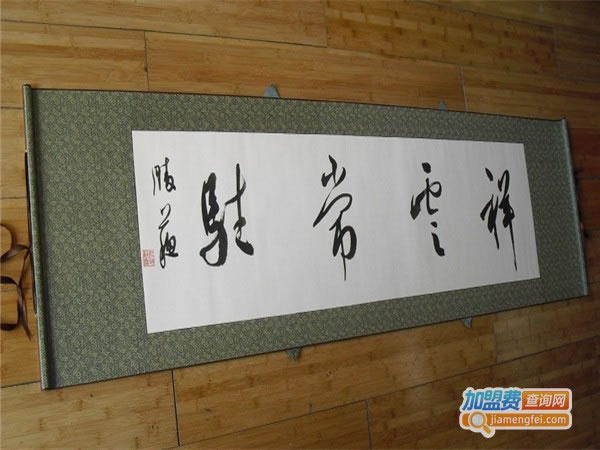 祥雲常駐
加盟费查询网
jiamengfei.com